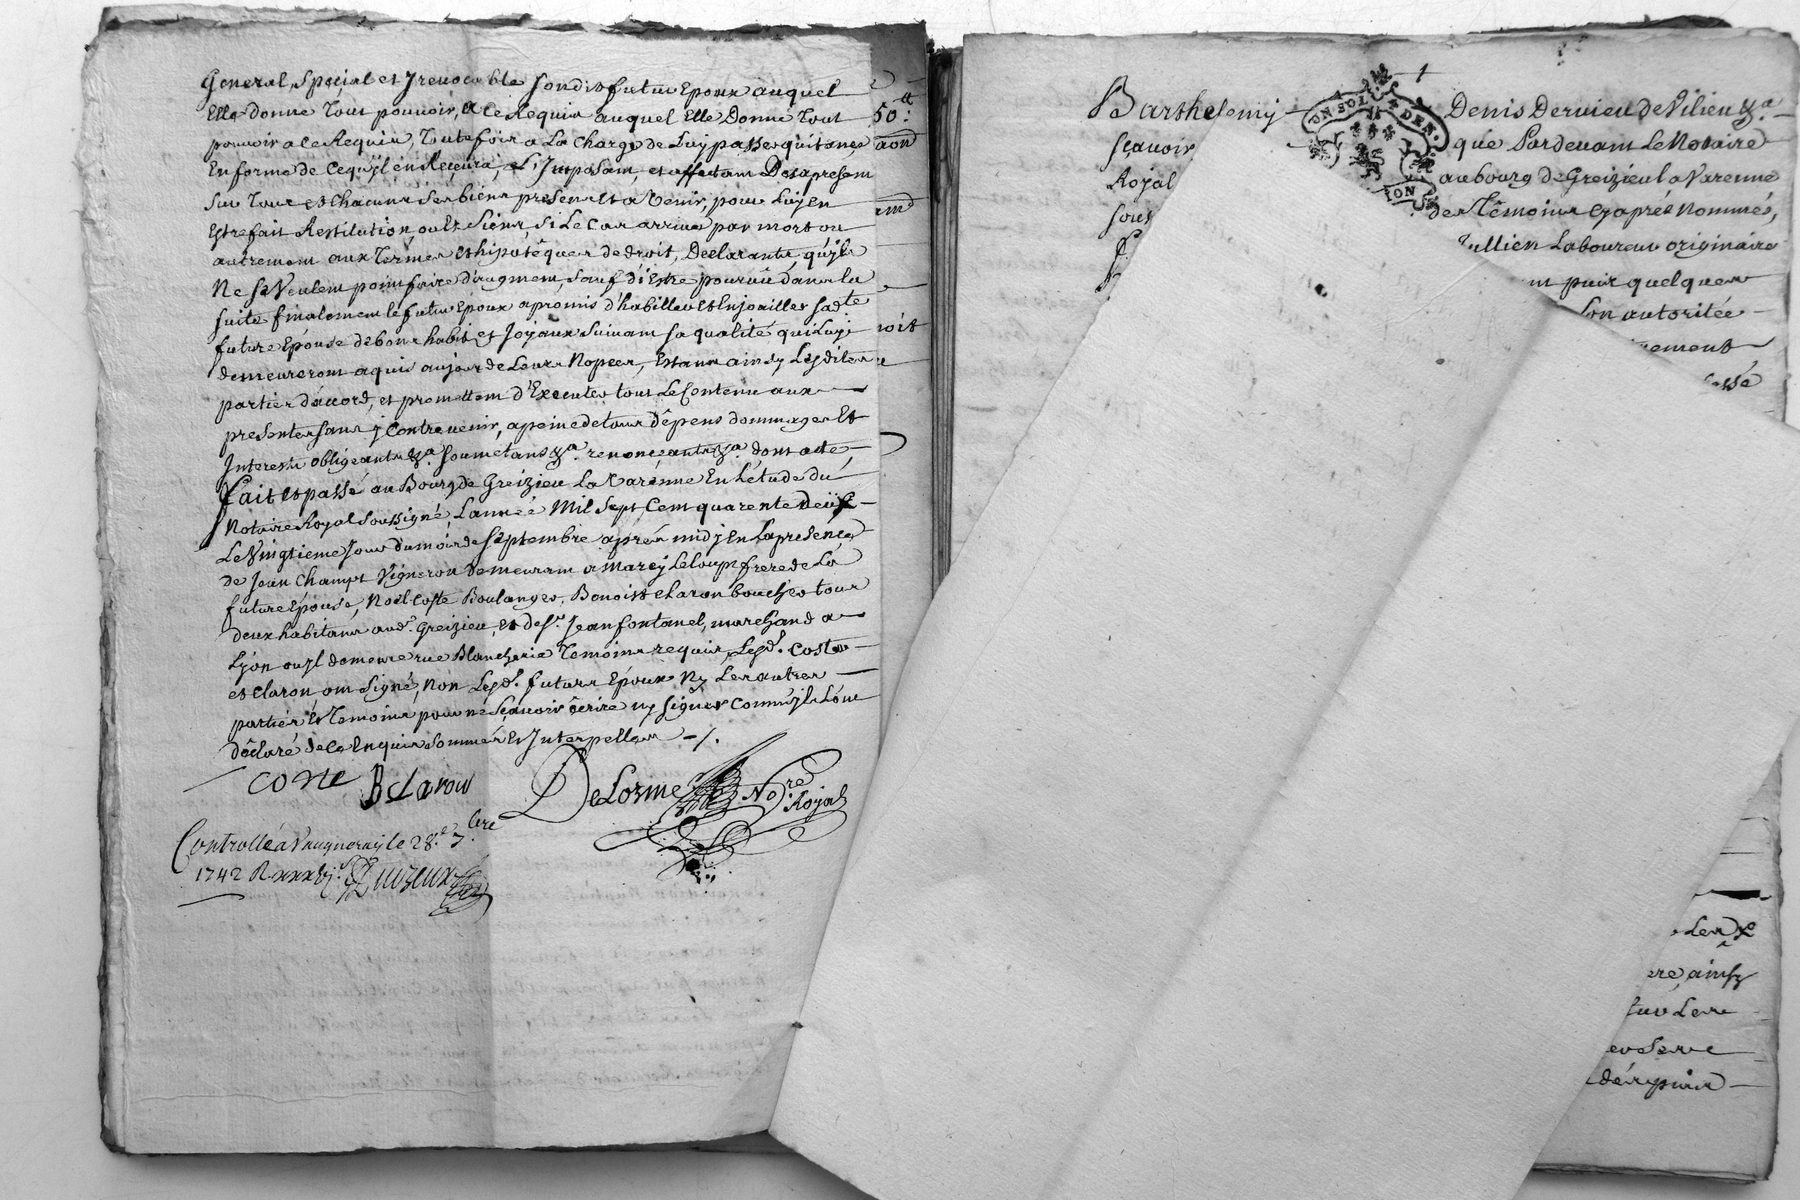 General, Special et Irevocable sondit futur Epoux auquel
Elle donne tout pouvoir, A ce Requis auquel Elle Donne tout
pouvoir a ce Requis, Toutefois a La Charge de Luy passer quitance
En forme de Ce qu'jl en Recevra, et L'Imposant et affectant Des apresent
sur Tous et Chacuns ses biens presents et a Venir, pour Luy en
Estre fait Restitution ou Es Siens, Si Le Cas arrive par mort ou
autrement aux Termes et hipotêques de droit, Declarants qu'jls
Ne se Veulent point faire d'augment, sauf d'y Estre pourvû dans la
suite, finalement le futur Epoux a promis d'habiller et Enjoailler sadte
future Epouse de bons habits et Joyaux Suivant sa qualité qui Luy
demeureront aquis au jour de Leurs Nopces, Estants ainsy Lesdites
parties d'acord, et promettent d'Executer tout Le Contenu aux
presentes sans y Contrevenir, a peine de tous Dêpens dommages Et
Interests obligeants &a. soumetants &a. renonçants &a. dont acte,
fait et passé au Bourg de Greizieu La Varenne En L'etude du
Notaire Royal Soussigné, L'année Mil Sept Cent quarente Deux
Le Vingtieme Jour du mois de septembre après midy En La presence
de Jean Champt Vigneron demeurant a Marcy Le loup frere de La
future Epouse, Noël Coste Boulanger, Benoist Claron boucher tous
deux habitants aud. Greizieu, Et de sr. Jean fontanel, marchand a
Lyon ou jl demeure rue Blancherie Temoins requis, Lesd. Coste
et Claron ont Signé, Non Lesd. futurs Epoux Ny Les autres
parties Et Temoins pour ne Sçavoir êcrire ny signer Comm'jls L'ont
dêclaré de ce Enquis Sommés Et Interpellés ./.
coste B Claron DeLorme Nore. Royal
Controllé a Vaugneray le 28e. 7bre
1742 R
50
Barthelemy Denis Dervieu de Vilieu &a.
sçavoir que Pardevant Le Notaire
Royal au bourg de Greizieu La Varenne
sous des Têmoins Cy après Nommés,
ullien Laboureur originaire
nt puis quelques
son autoritée
rement
ere, ainsy